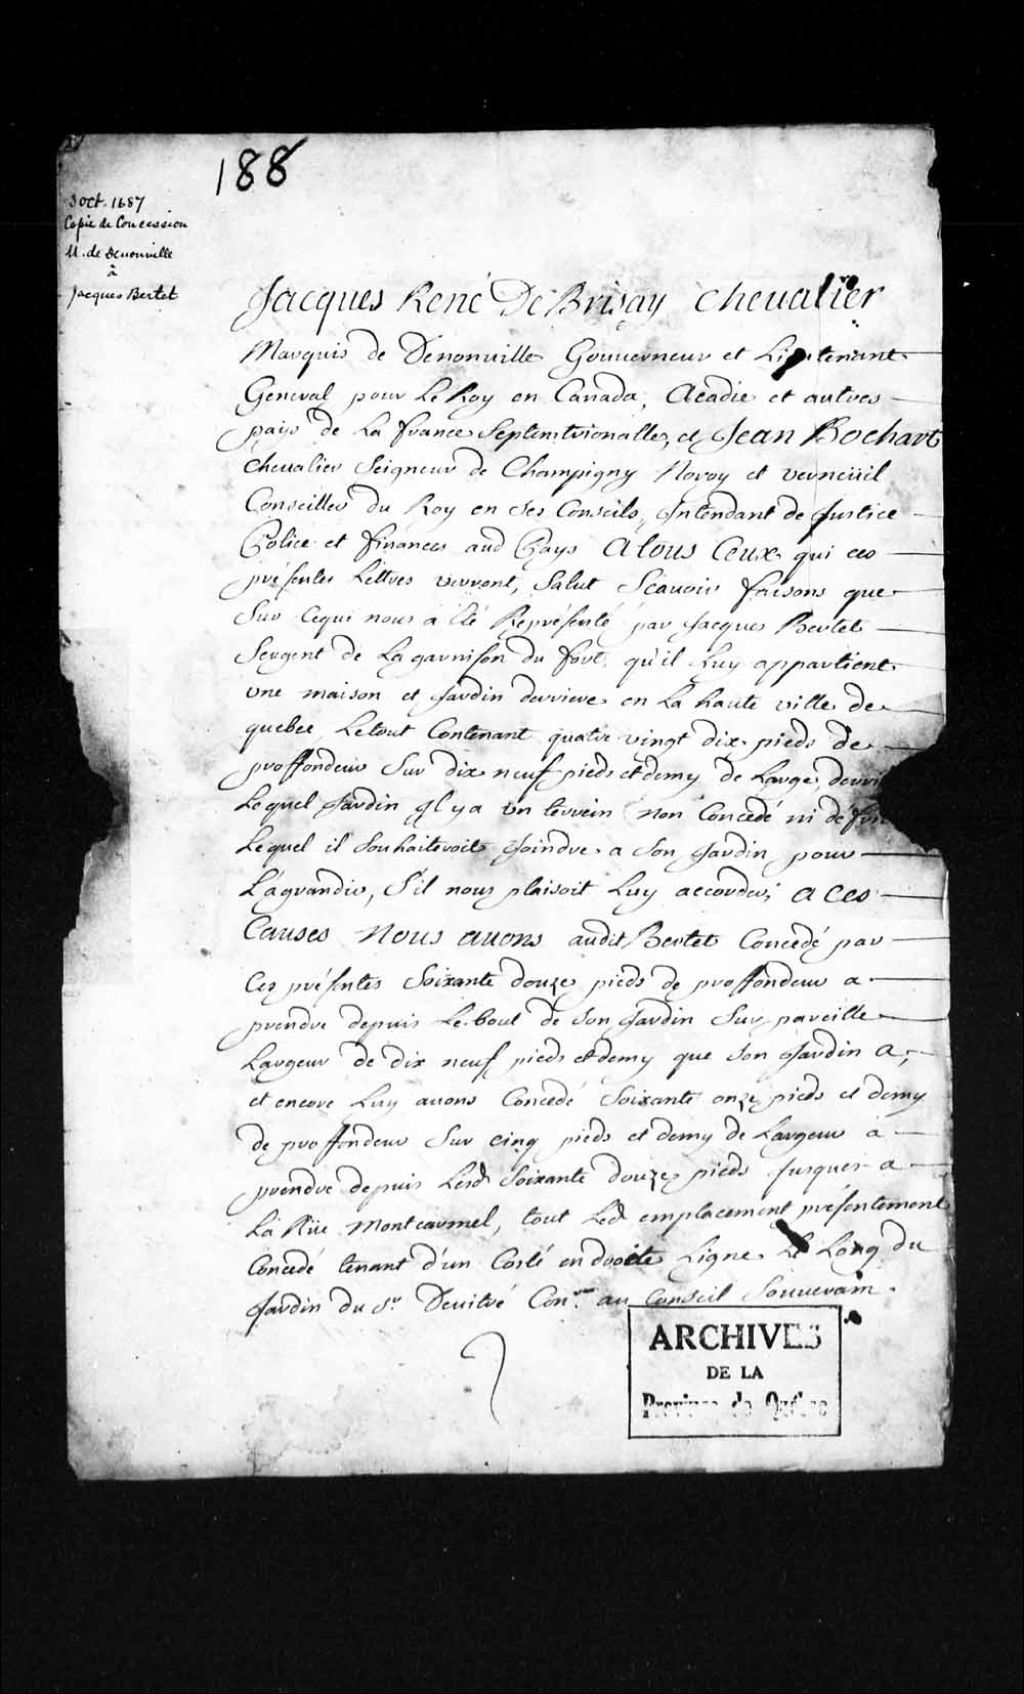 188
3 oct. 1687
Copie de Concession
M. de Denonville
à
Jacques Bertet
Jacques René De Brisay Cheualier
Marquis de Denonuille Gouuerneur et Lieutenant
General pour Le Roy en Canada, Acadie et autres
pays de La france Septentrionalle, et Jean Bochart
Cheualier Seigneur de Champigny Noroy et verneüil
Conseiller du Roy en ses Conseils, Intendant de Justice
Police et finances aud Pays A tous Ceux qui ces
présentes Lettres verront, Salut Scauoir faisons que
Sur Cequi nous a été Représenté par Jacques Bertet
Sergent de La garnison du fort, qu'il Luy appartient
une maison et Jardin derriere en La haute ville de
quebec, Letout Contenant quatre vingt dix pieds de
proffondeur Sur dix neuf pieds et demy de Large,
Lequel Jardin Il y a un terrein non Concedé ni
Lequel il Souhaiteroit Joindre a Son Jardin pour
L'agrandir, S'il nous plaisoit Luy accorder; a Ces
Causes Nous auons audit Bertet Concedé par
Ces présentes Soixante douze pieds de proffondeur a
prendre depuis Le bout de Son Jardin Sur pareille
Largeur de dix neuf pieds et demy que Son Jardin a,
et encore Luy auons Concedé Soixante onze pieds et demy
de proffondeur Sur cinq pieds et demy de Largeur a
prendre depuis Lesd Soixante douze pieds Jusques a
La Rüe montcarmel, tout Led emplacement présentement
Concedé tenant d'un Costé en droite Ligne Le Long du
Jardin du Sr. Deuitré Con.er au Conseil Souuerain.
ARCHIVES
DE LA
Province de Québec